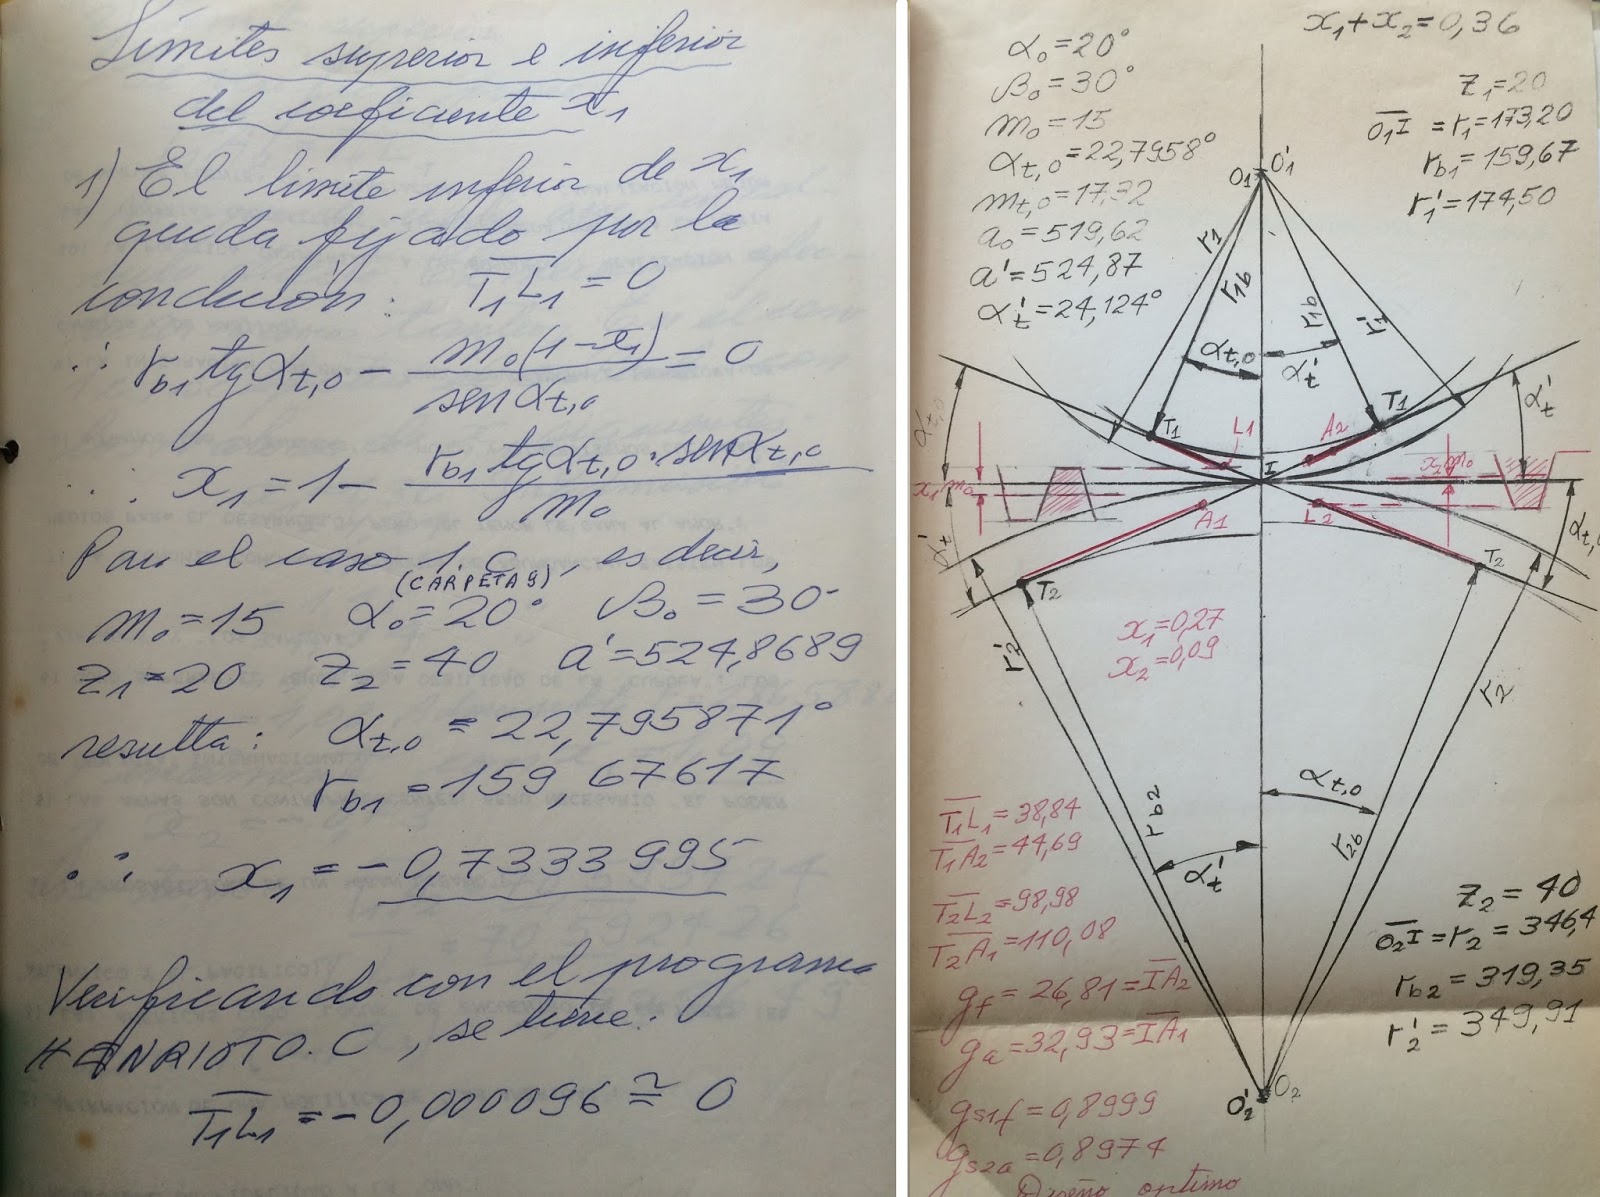 Límites superior e inferior
del coeficiente x₁
1) El límite inferior de x₁
queda fijado por la
condición: T̅₁L̅₁ = 0
∴ r_b1 tg α_t,0 − m₀(1−x₁)/sen α_t,0 = 0
∴ x₁ = 1 − r_b1 tg α_t,0 · sen α_t,0 / m₀
Para el caso 1.C, es decir,
(CARPETA 9)
m₀ = 15 α₀ = 20° β₀ = 30°
z₁ = 20 z₂ = 40 a' = 524,8689
resulta: α_t,0 = 22,795871°
r_b1 = 159,67617
∴ x₁ = −0,7333995
Verificando con el programa
HENRIOTO.C, se tiene:
T̅₁L̅₁ = −0,000096 ≅ 0
x₁ + x₂ = 0,36
α₀ = 20°
β₀ = 30°
m₀ = 15
α_t,0 = 22,7958°
m_t,0 = 17,32
a₀ = 519,62
a' = 524,87
α'_t = 24,124°
z₁ = 20
O̅₁I̅ = r₁ = 173,20
r_b1 = 159,67
r'₁ = 174,50
O₁ O'₁
r₁
r₁b
r₁b
r'₁
α_t,0
α'_t
T₁
T₁
L₁
A₂
I
α_t,0
α'_t
x₁m₀
x₂m₀
α'_t
α_t,0
A₁
L₂
T₂
T₂
x₁ = 0,27
x₂ = 0,09
r'₂
r₂
r_b2
r₂b
α_t,0
α'_t
T̅₁L̅₁ = 38,84
T̅₁A̅₂ = 44,69
T̅₂L̅₂ = 98,98
T̅₂A̅₁ = 110,08
g_f = 26,81 = I̅A̅₂
g_a = 32,93 = I̅A̅₁
g_s1f = 0,8999
g_s2a = 0,8974
Diseño optimo
z₂ = 40
O̅₂I̅ = r₂ = 346,4
r_b2 = 319,35
r'₂ = 349,91
O'₂ O₂